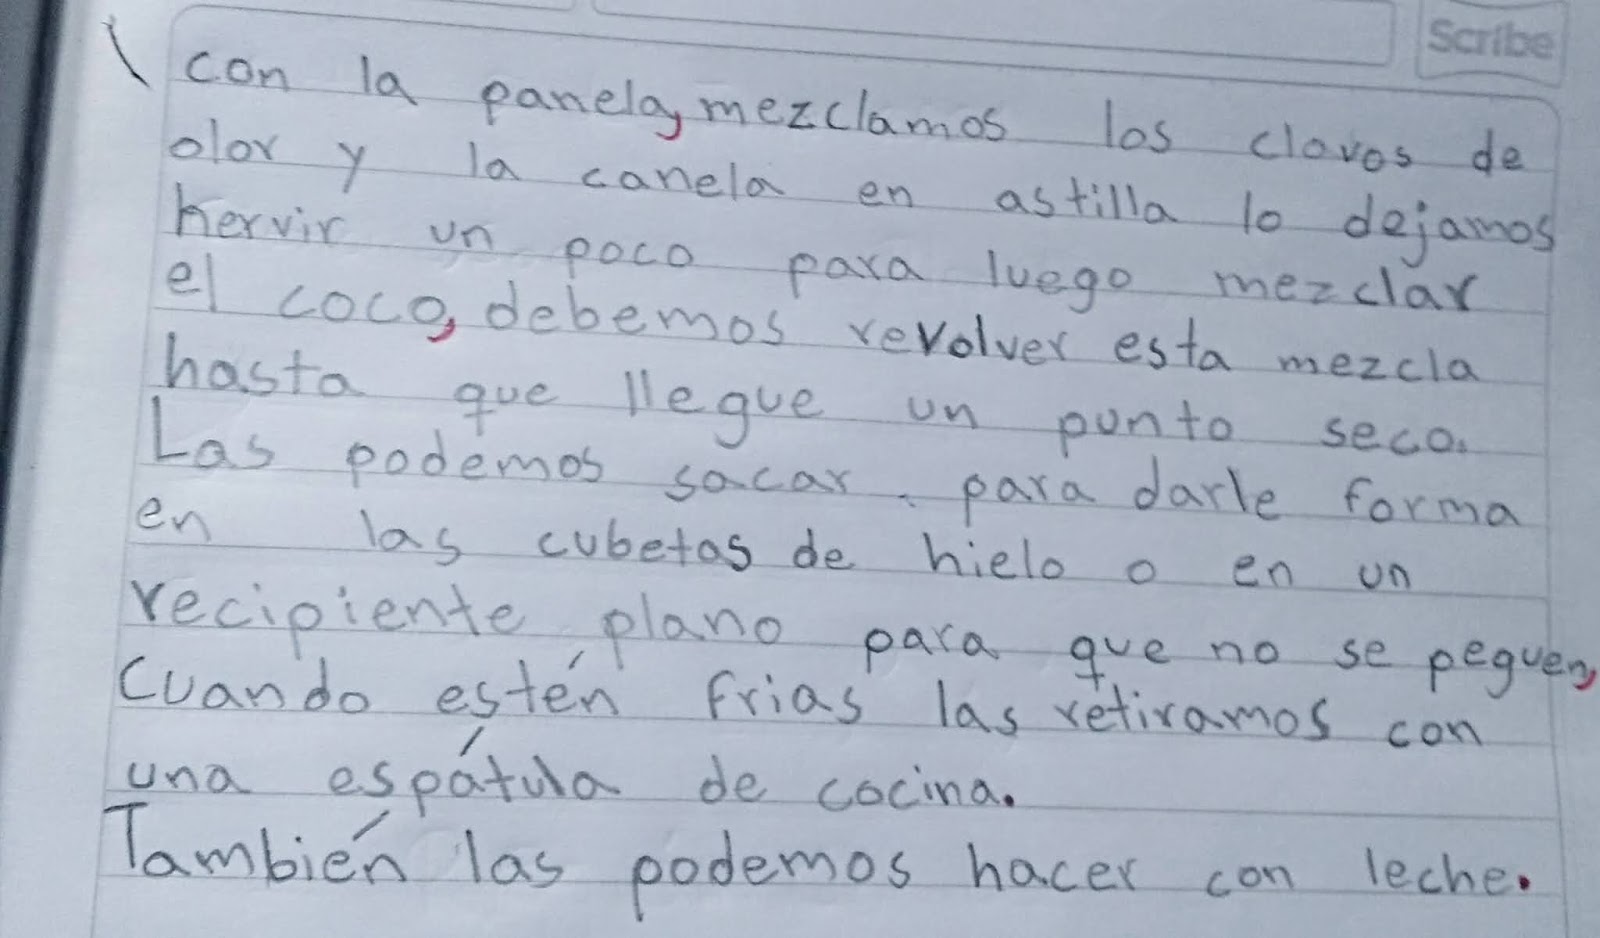 Scribe
con la panela, mezclamos los clavos de
olor y la canela en astilla lo dejamos
hervir un poco para luego mezclar
el coco, debemos revolver esta mezcla
hasta que llegue un punto seco.
Las podemos sacar para darle forma
en las cubetas de hielo o en un
recipiente plano para que no se peguen,
Cuando estén frias las retiramos con
una espátula de cocina.
También las podemos hacer con leche.